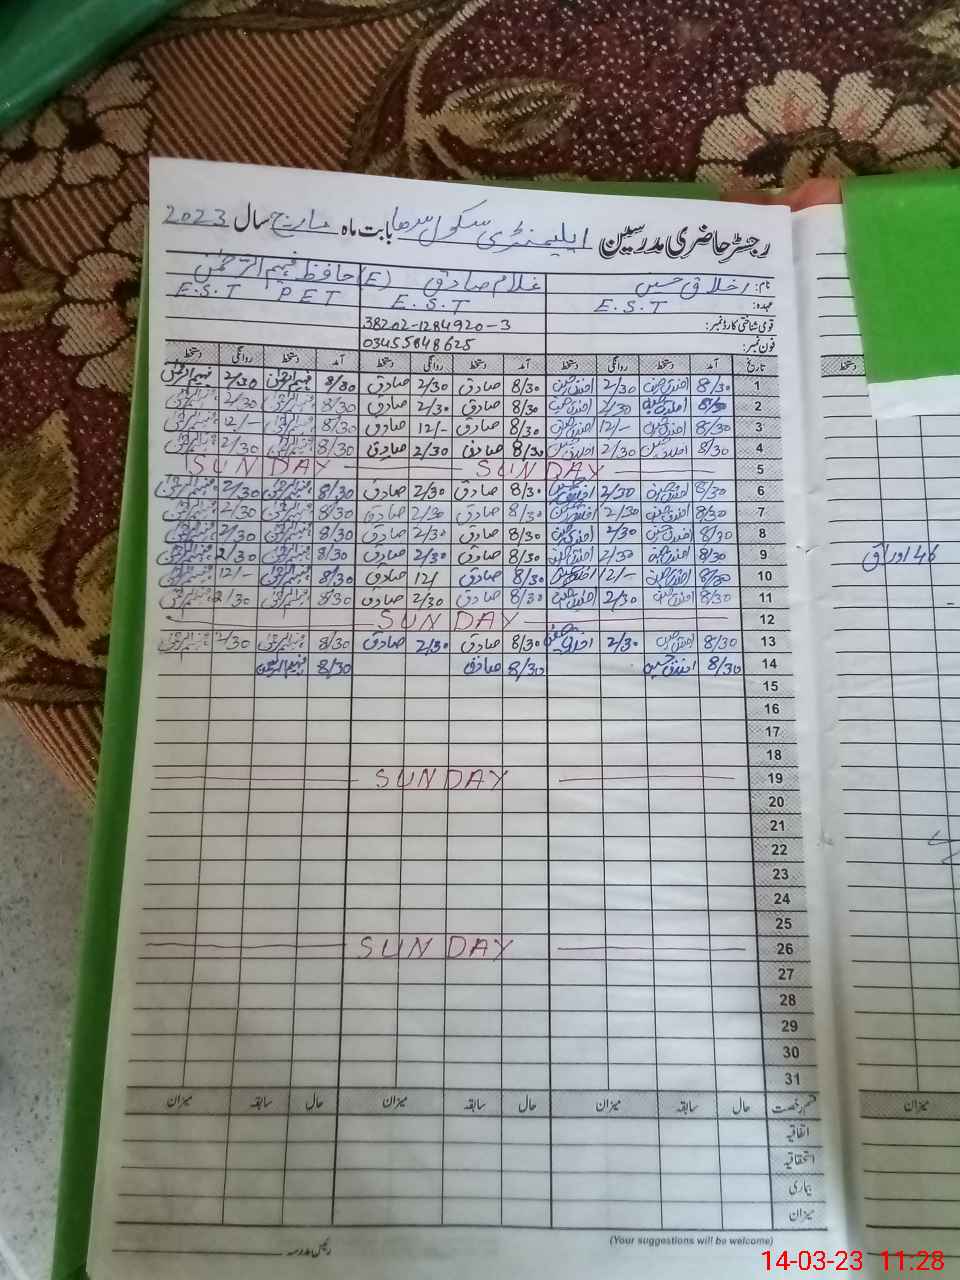 رجسٹر حاضری مدرسین ایلیمنٹری سکول سدھا بابت ماہ مارچ سال 2023
نام: اخلاق حسین غلام صادق (E) حافظ فہیم الرحمٰن
عہدہ: E.S.T E.S.T E.S.T PET
قومی شناختی کارڈ نمبر: 38202-1284920-3
فون نمبر: 03455848625
تاریخ آمد دستخط روانگی دستخط آمد دستخط روانگی دستخط آمد دستخط روانگی دستخط دستخط
1 8/30 اخلاق حسین 2/30 اخلاق حسین 8/30 صادق 2/30 صادق 8/30 فہیم الرحمٰن 2/30 فہیم الرحمٰن
2 8/30 اخلاق حسین 2/30 اخلاق حسین 8/30 صادق 2/30 صادق 8/30 فہیم الرحمٰن 2/30 فہیم الرحمٰن
3 8/30 اخلاق حسین 12/- اخلاق حسین 8/30 صادق 12/- صادق 8/30 فہیم الرحمٰن 12/- فہیم الرحمٰن
4 8/30 اخلاق حسین 2/30 اخلاق حسین 8/30 صادق 2/30 صادق 8/30 فہیم الرحمٰن 2/30 فہیم الرحمٰن
5 SUNDAY SUNDAY
6 8/30 اخلاق حسین 2/30 اخلاق حسین 8/30 صادق 2/30 صادق 8/30 فہیم الرحمٰن 2/30 فہیم الرحمٰن
7 8/30 اخلاق حسین 2/30 اخلاق حسین 8/30 صادق 2/30 صادق 8/30 فہیم الرحمٰن 2/30 فہیم الرحمٰن
8 8/30 اخلاق حسین 2/30 اخلاق حسین 8/30 صادق 2/30 صادق 8/30 فہیم الرحمٰن 2/30 فہیم الرحمٰن
9 8/30 اخلاق حسین 2/30 اخلاق حسین 8/30 صادق 2/30 صادق 8/30 فہیم الرحمٰن 2/30 فہیم الرحمٰن
46 اوراق
10 8/30 اخلاق حسین 12/- اخلاق حسین 8/30 صادق 12/ صادق 8/30 فہیم الرحمٰن 12/- فہیم الرحمٰن
11 8/30 اخلاق حسین 2/30 اخلاق حسین 8/30 صادق 2/30 صادق 8/30 فہیم الرحمٰن 2/30 فہیم الرحمٰن
12 SUNDAY
13 8/30 اخلاق حسین 2/30 اخلاق حسین 8/30 صادق 2/30 صادق 8/30 فہیم الرحمٰن 2/30 فہیم الرحمٰن
14 8/30 اخلاق حسین 8/30 صادق 8/30 فہیم الرحمٰن
15
16
17
18
19 SUNDAY
20
21
22
23
24
25
26 SUNDAY
27
28
29
30
31
قسم رخصت حال سابقہ میزان حال سابقہ میزان حال سابقہ میزان میزان
اتفاقیہ
استحقاقیہ
بیماری
میزان
(Your suggestions will be welcome)
رئیس مدرسہ
14-03-23 11:28